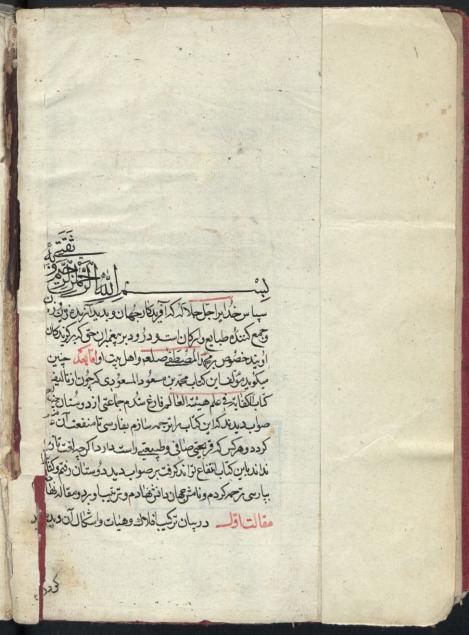 ثقتی
بسم الله الرحمن الرحیم
سپاس خدایرا جل جلاله که آفریدکار جهان و پدید آرنده
و جمع کننده طبایع و ارکان است و درود بر پیغمبران حق که برکزیدکان
اویند خصوص بر محمد المصطفی صلعم و اهل بیت او اما بعد چنین
میکوید مؤلف این کتاب محمد بن مسعود المسعودی که چون از تالیف
کتاب الکفایه فی علم هیئة العالم فارغ شدم جماعتی از دوستان
صواب دیدند که این کتاب را ترجمه سازم بفارسی تا منفعت آن
کردد و هر کس که قریحتی صافی و طبیعتی راست دارد اکرچه لغت تازی
نداند باین کتاب انتفاع تواند کرفت بر صواب دید دوستان رفتم
بپارسی ترجمه کردم و نامش جهان دانش نهادم و ترتیب او بر دو مقاله نهادم
مقالت اول در بیان ترکیب افلاک و هیات و اشکال آن و پدید